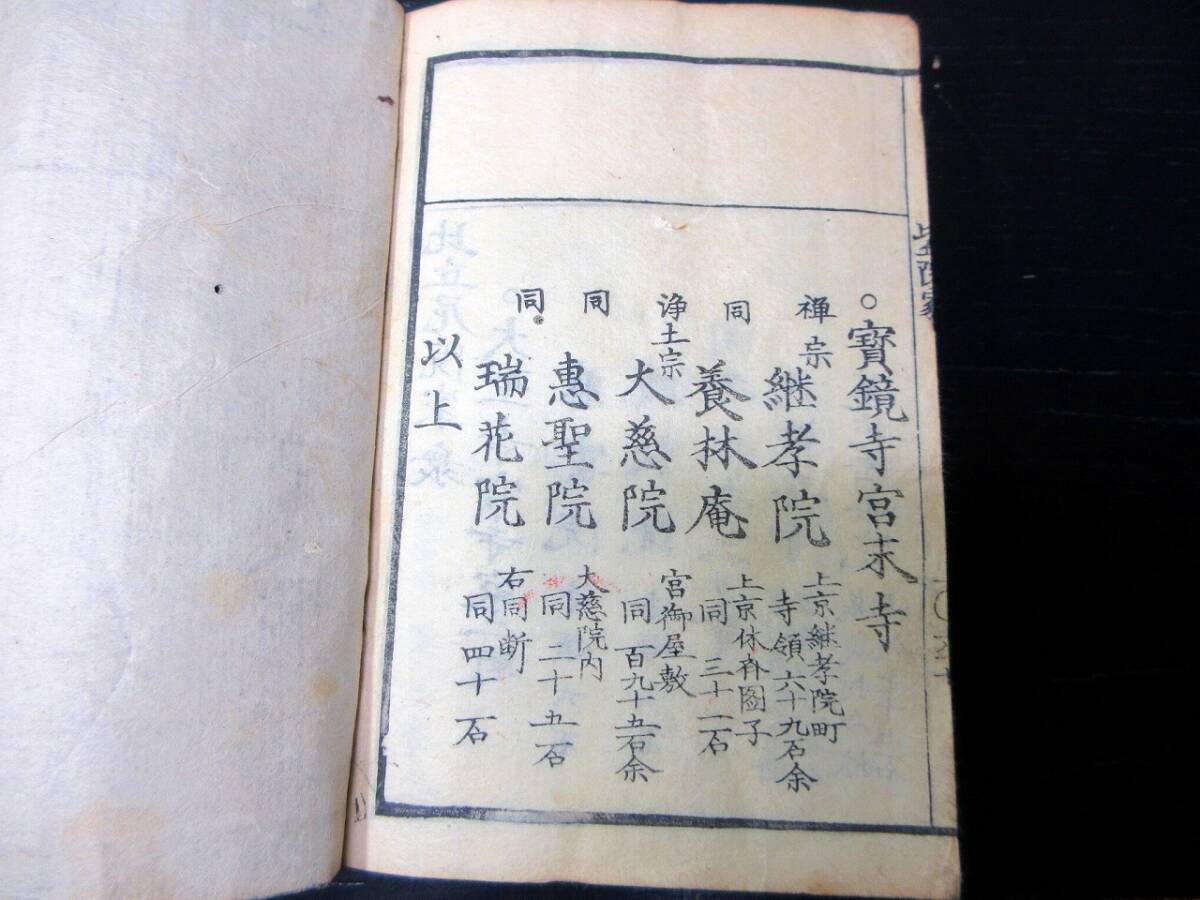 ○寶鏡寺宮末寺
禅宗 継孝院 上京継孝院町 寺領六十九石余
同 養林庵 上京休斉図子 同 三十一石
浄土宗 大慈院 宮御屋敷 同 百九十五石余
同 惠聖院 大慈院内 同 二十五石
同 瑞花院 右同断 同 四十石
以上